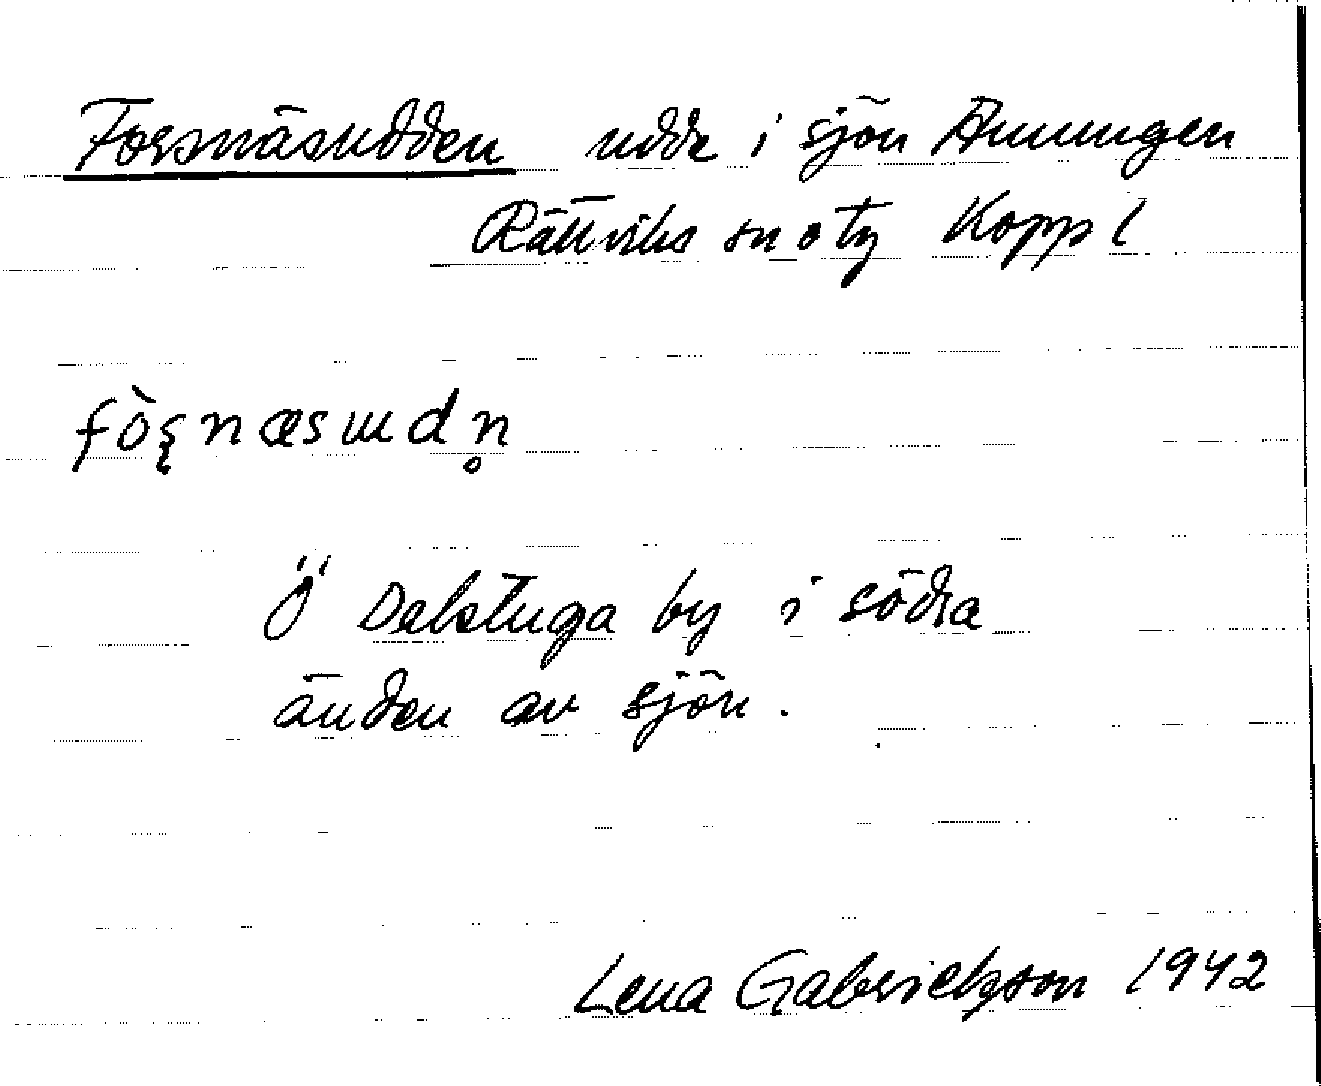 Forsnäsudden udde i sjön Amungen
Rättviks sn o tg Kopp l
fòʂnæsɯdn̥
Ö Dalstuga by i södra
änden av sjön.
Lena Gabrielsson 1942